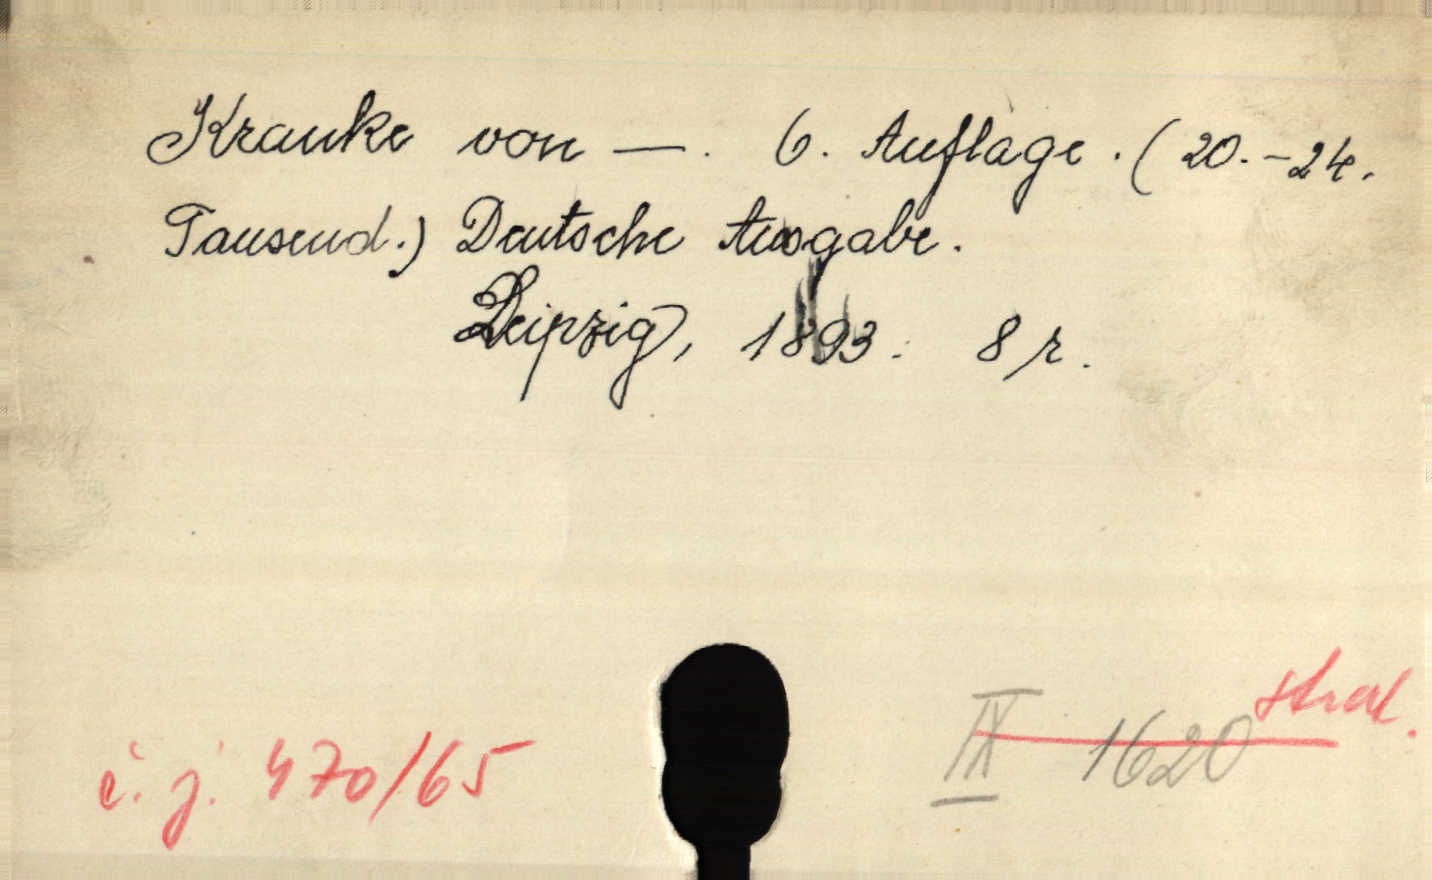 Kranke von —. 6. Auflage. (20. – 24.
Tausend.) Deutsche Ausgabe.
Leipzig, 1893. 8 r.
IX 1620
č. j. 470/65